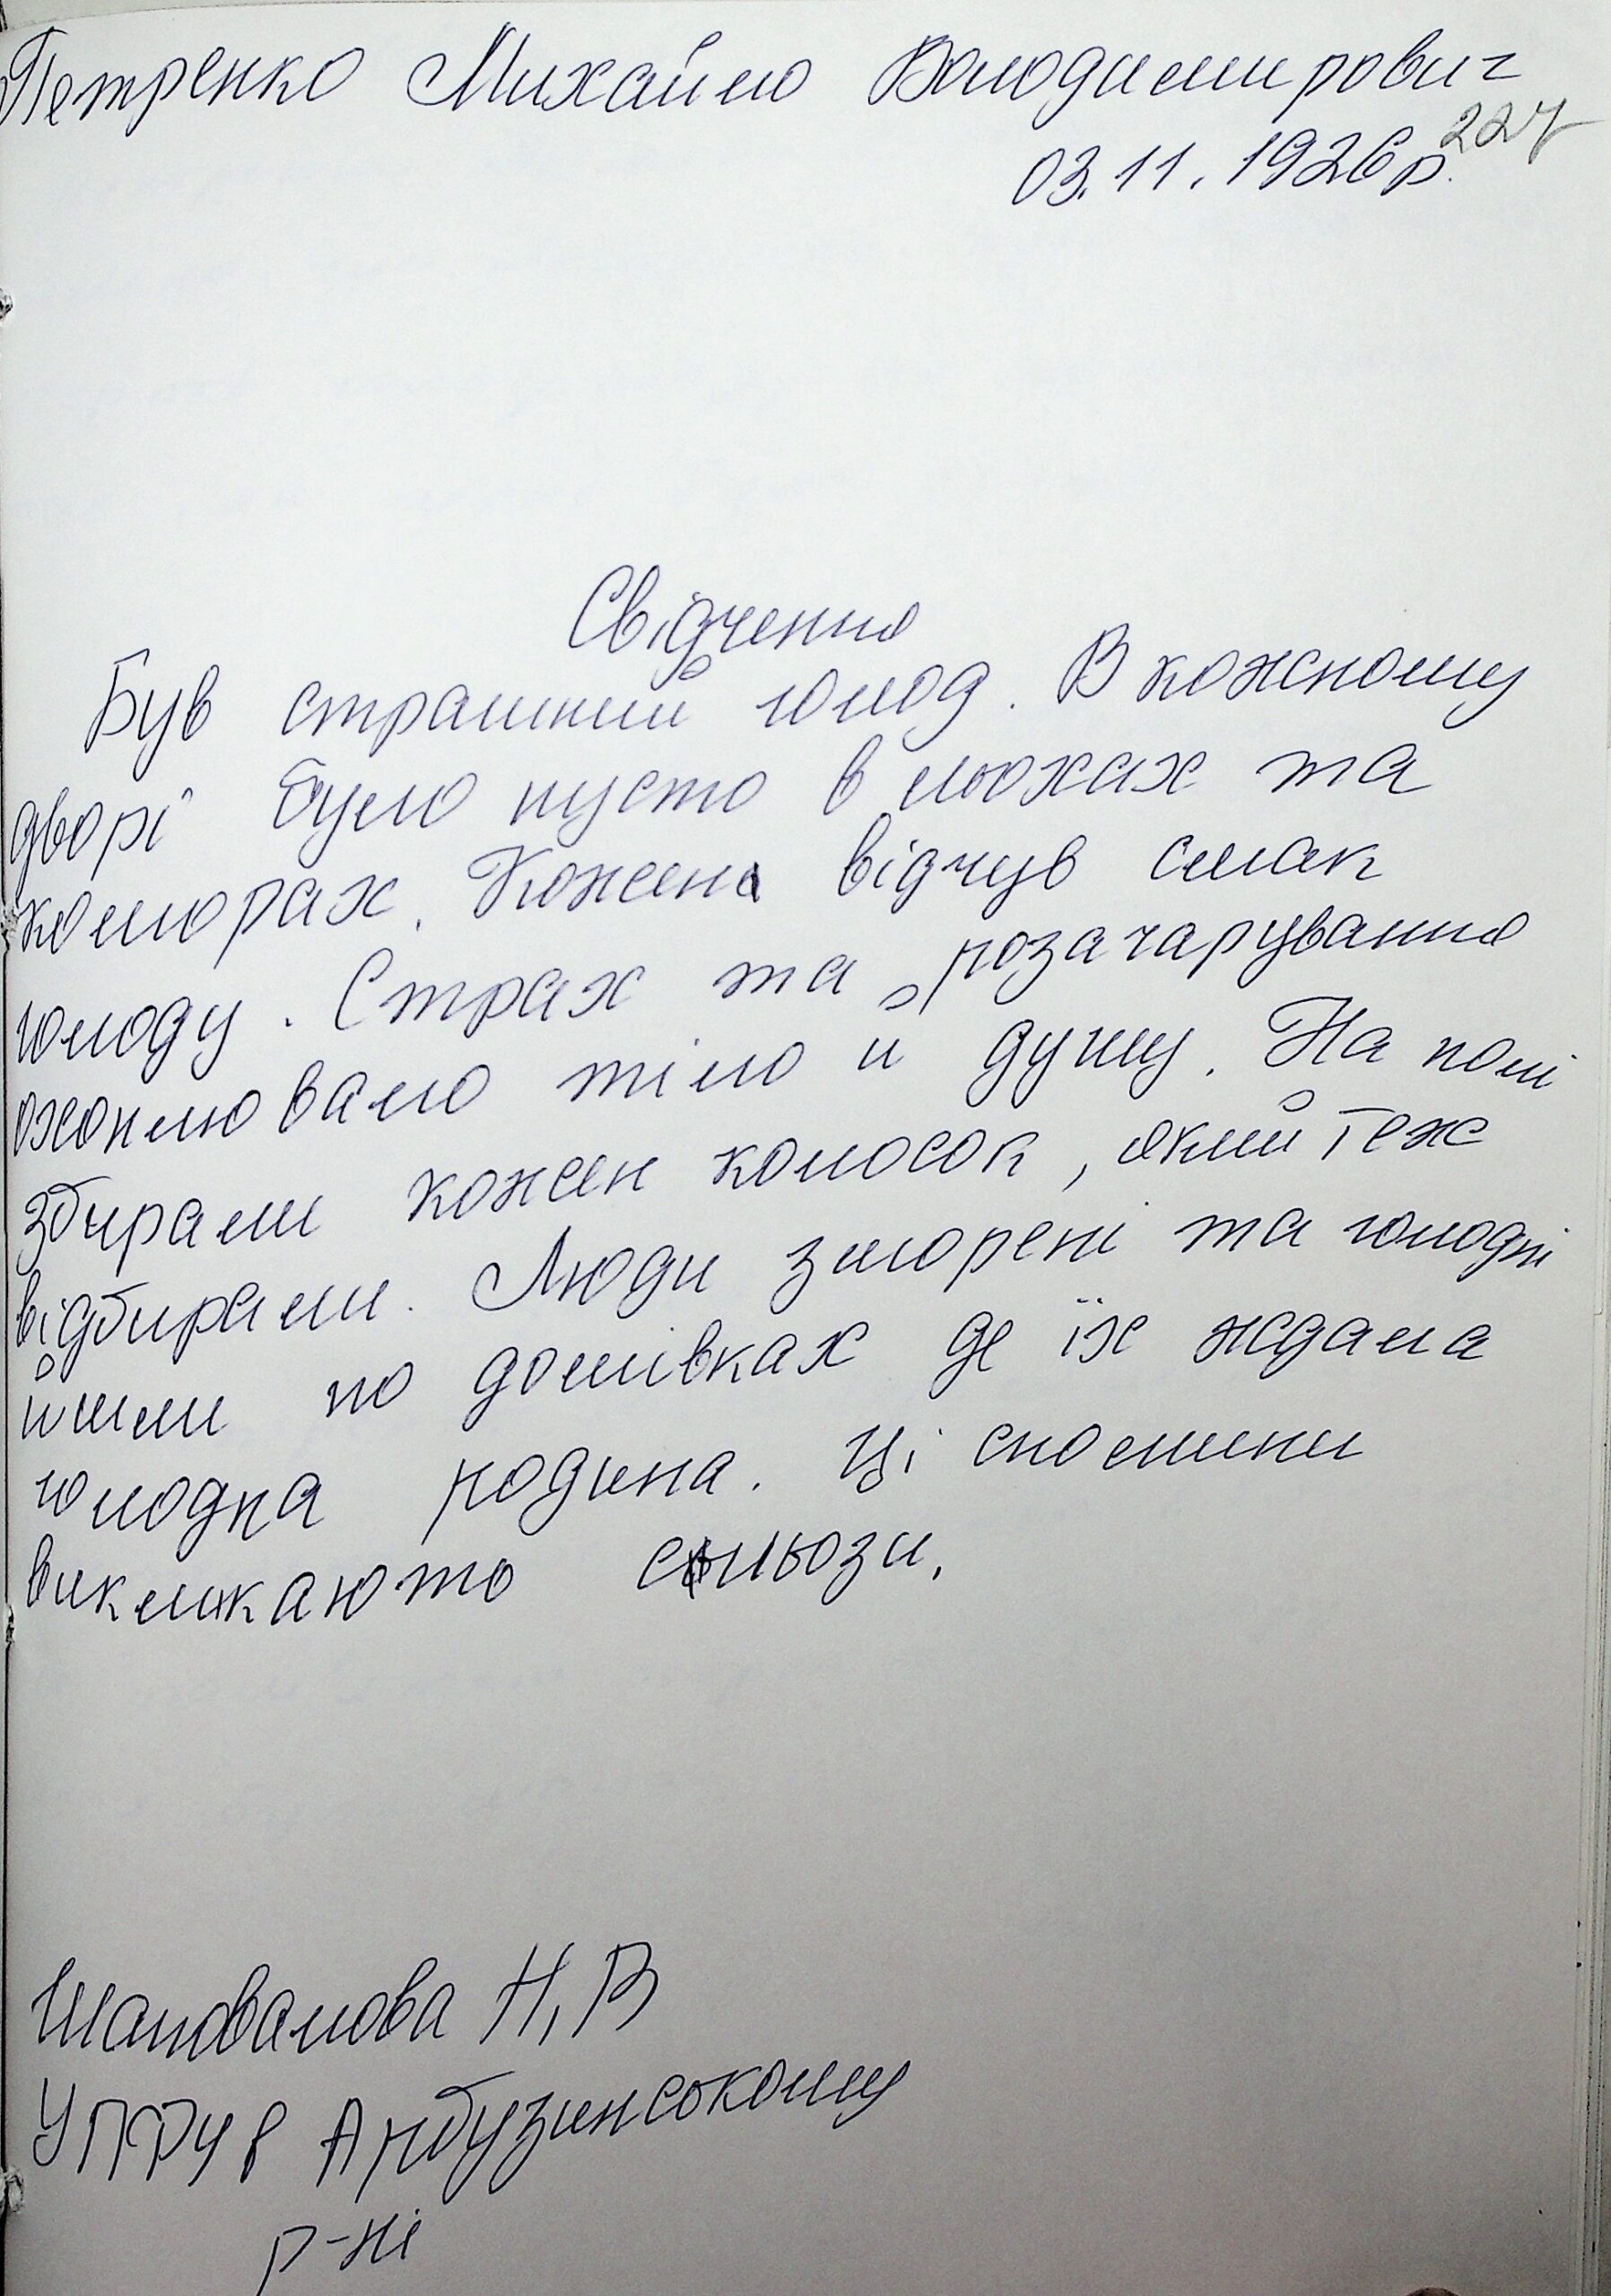 Петренко Михайло Володимирович
227
03.11.1926р.
Свідчення
Був страшний голод. В кожному
дворі було пусто в льохах та
коморах. Кожен відчув смак
голоду. Страх та розачарування
охоплювало тіло й душу. На полі
збирали кожен колосок, який теж
відбирали. Люди зморені та голодні
йшли по домівках де їх ждала
голодна родина. Ці спомини
викликають сльози.
Шаповалова Н,В
УПФУ в Арбузинському
р-ні